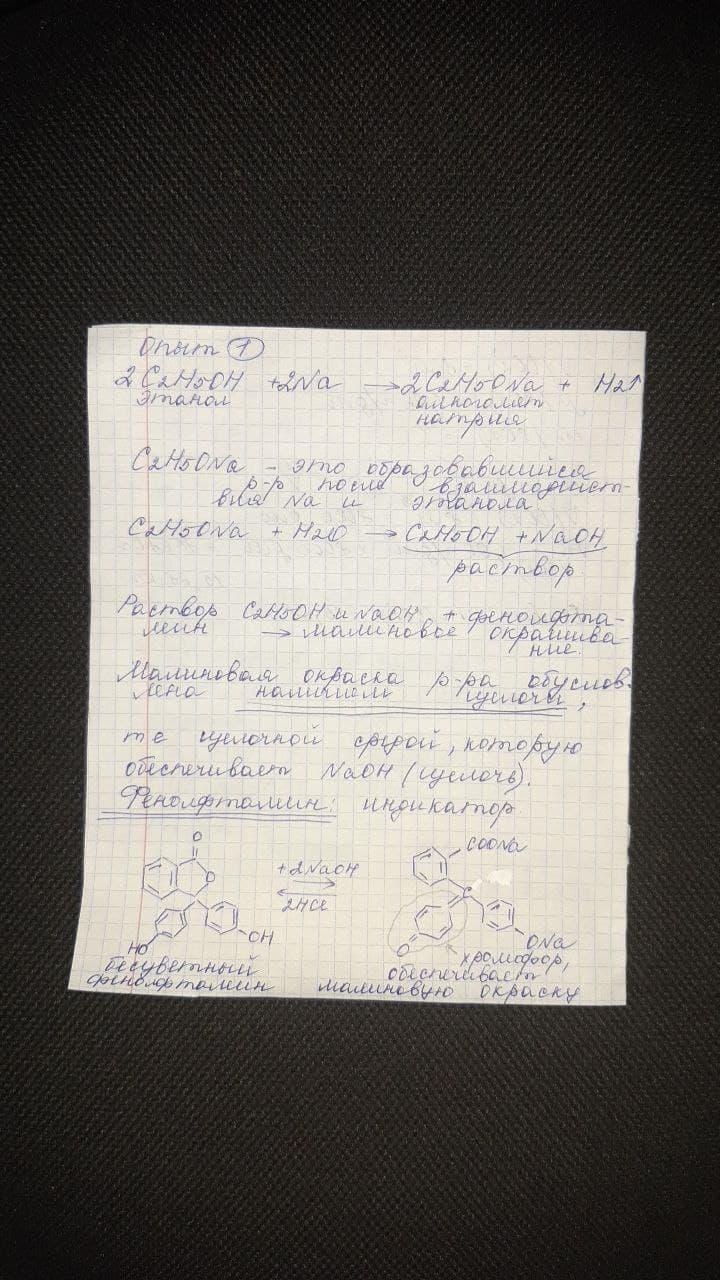 Опыт 1
2C2H5OH +2Na → 2C2H5ONa + H2↑
этанол алкоголят
натрия
C2H5ONa - это образовавшийся
р-р после взаимодейст-
вия Na и этанола
C2H5ONa + H2O → C2H5OH + NaOH
раствор
Раствор C2H5OH и NaOH + фенолфта-
леин → малиновое окрашива-
ние.
Малиновая окраска р-ра обуслов-
лена наличием щелочи,
т е щелочной средой, которую
обеспечивает NaOH (щелочь).
Фенолфталиин: индикатор.
O
O
HO
OH
+2NaOH
2HCl
COONa
C
O
ONa
бесцветный
фенолфталиин
хромофор,
обеспечивает
малиновую окраску